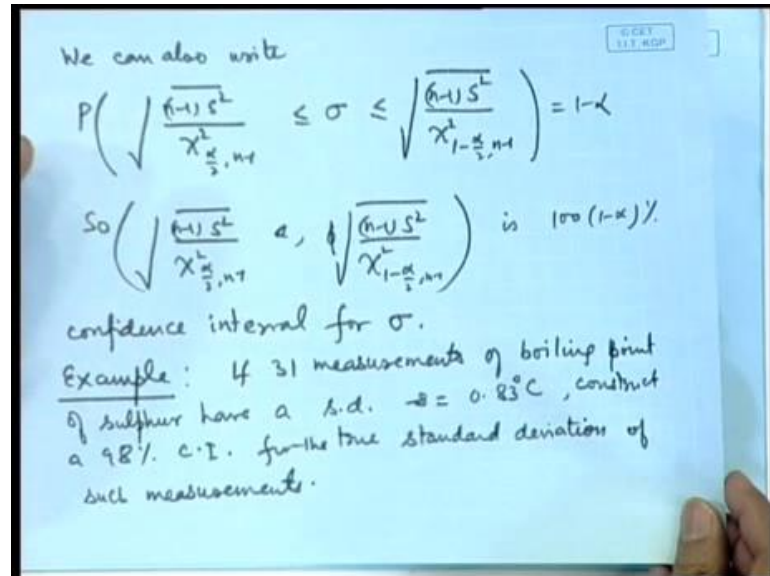 We can also write
C CET
I.I.T. KGP
P( √((n-1) S² / χ²_{α/2, n-1}) ≤ σ ≤ √((n-1) S² / χ²_{1-α/2, n-1}) ) = 1-α
So ( √((n-1) S² / χ²_{α/2, n-1}) , √((n-1) S² / χ²_{1-α/2, n-1}) ) is 100 (1-α) %.
confidence interval for σ.
Example : If 31 measurements of boiling point
of sulphur have a s.d. = 0.83°C, construct
a 98% C.I. for the true standard deviation of
such measurements.